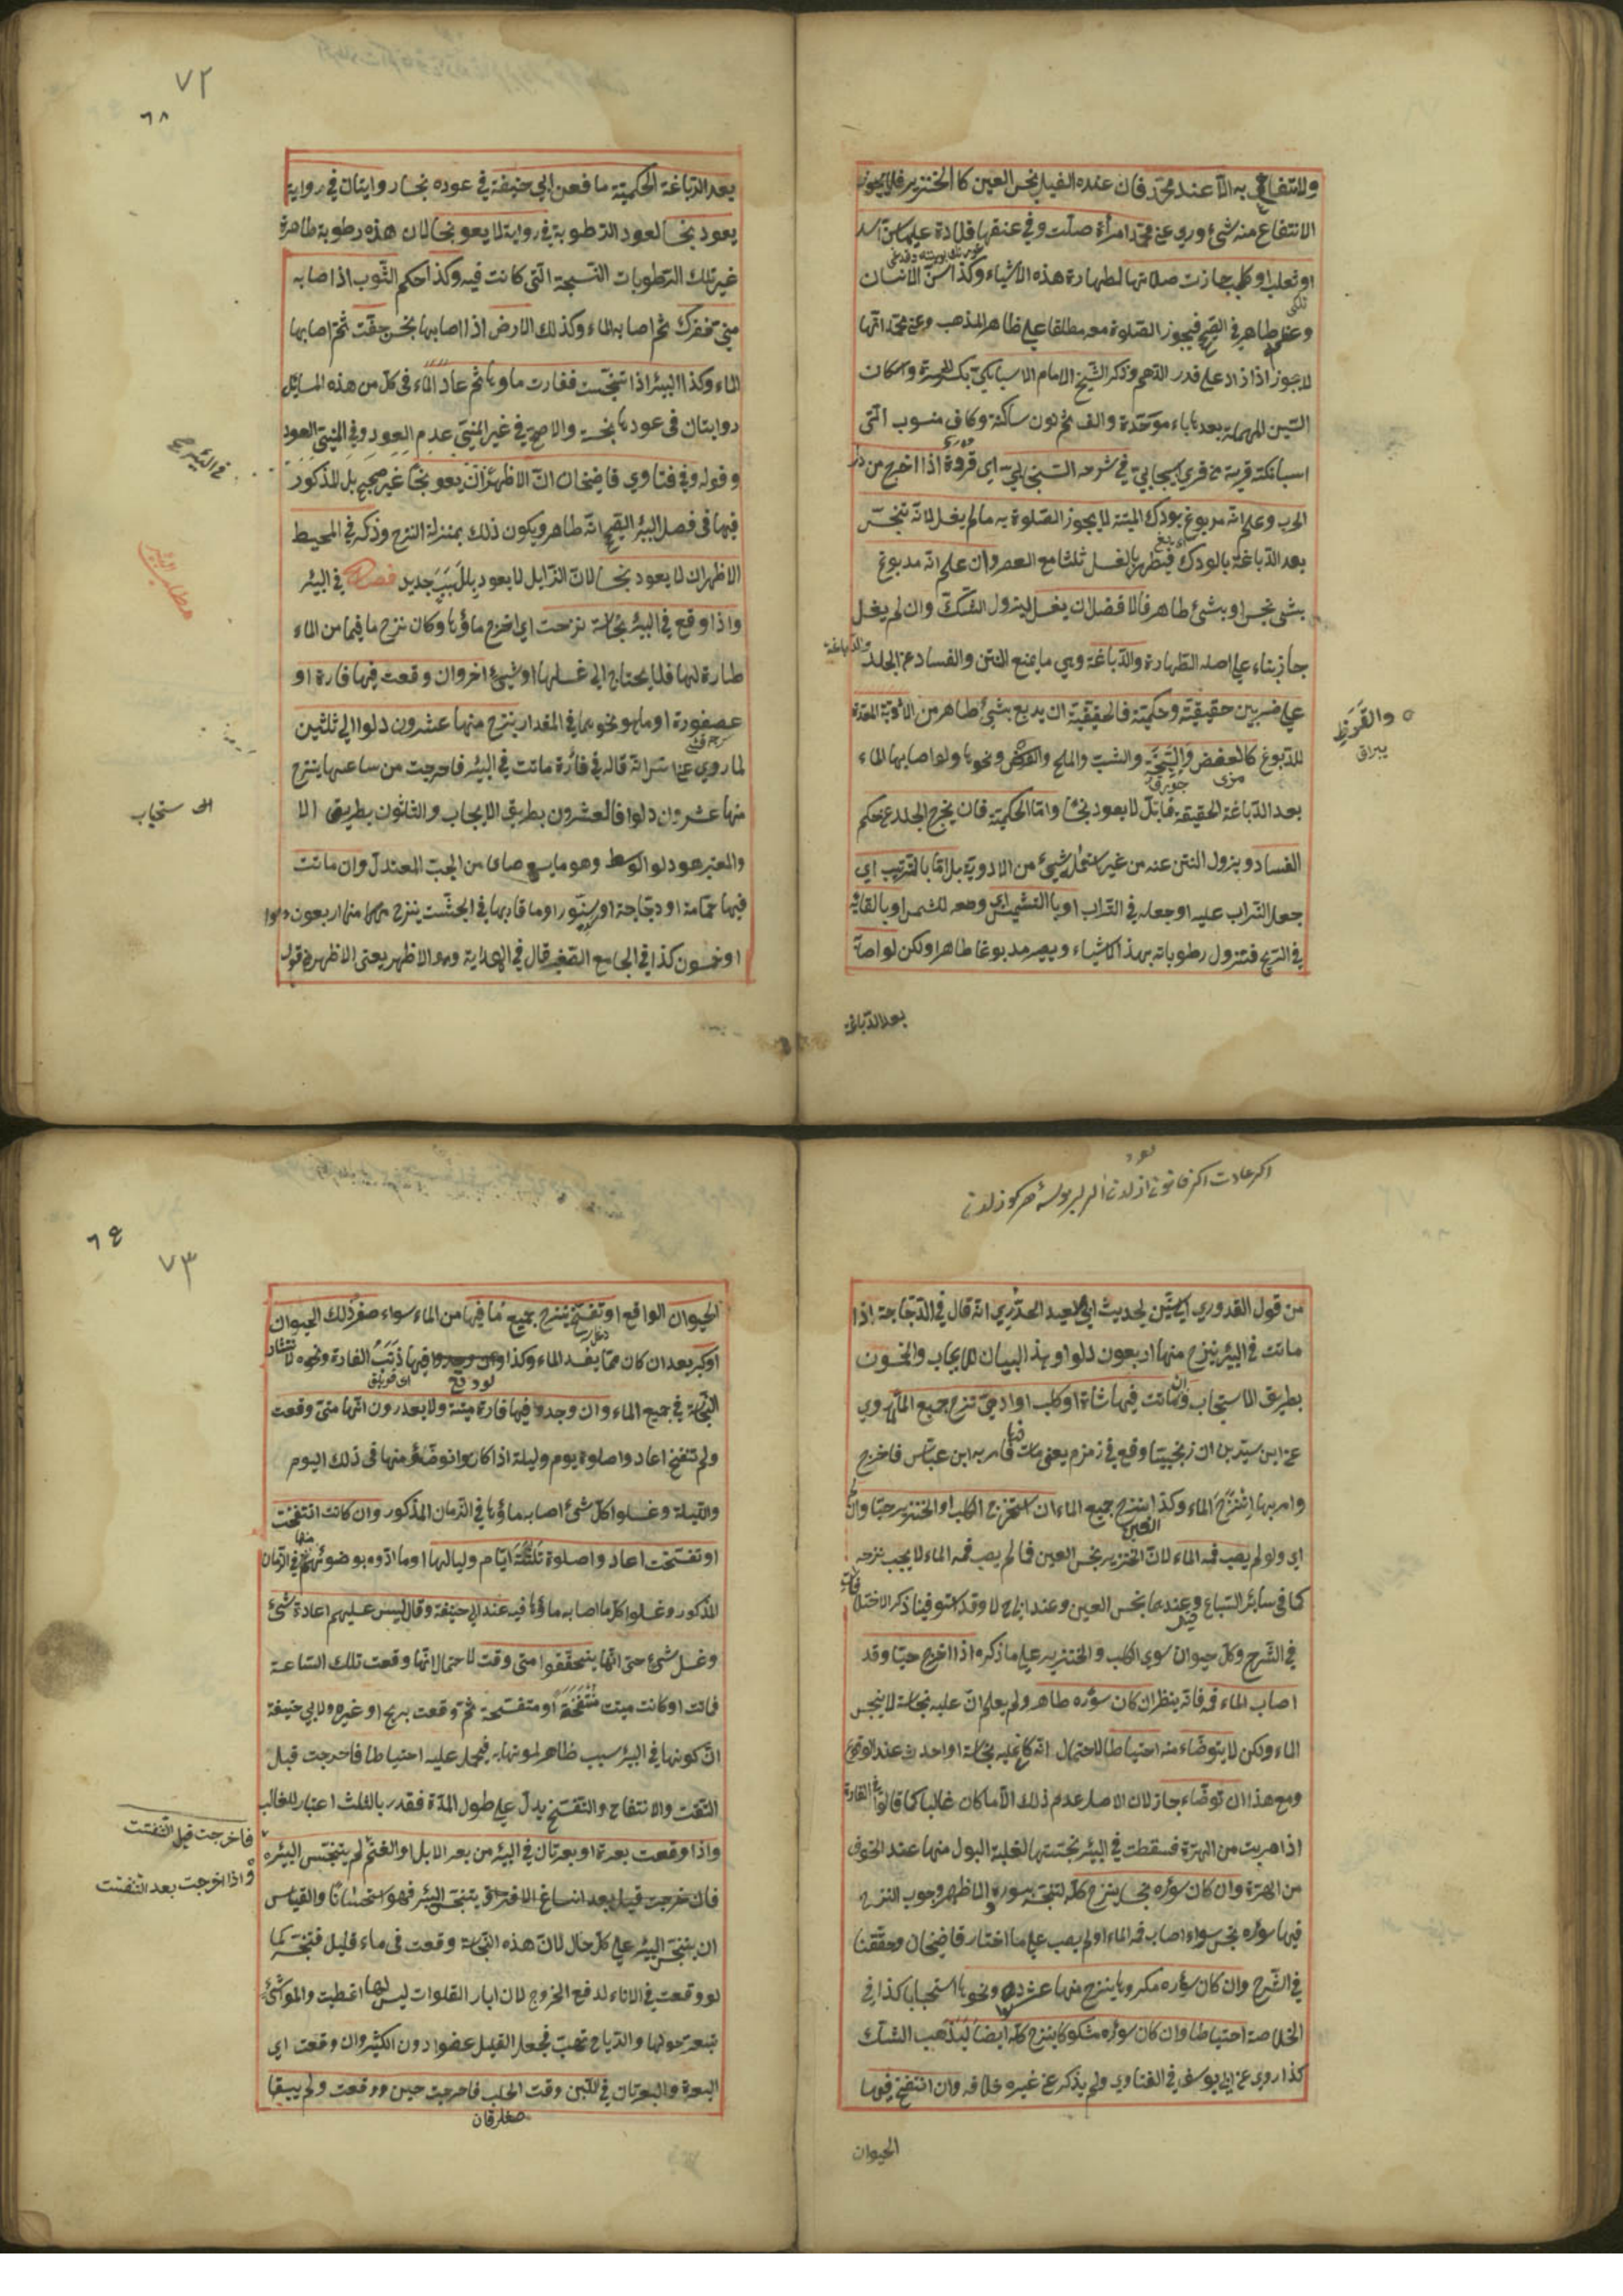 والانتفاع به الا عند محمد فان عنده الفيل نجس العين كالخنزير فلا يجوز
الانتفاع منه شئ وروي عن محمد امرأة صلت وفي عنقها قلادة عليها سن اسد
او ثعلب او كلب جازت صلاتها لطهارة هذه الاشياء وكذا سن الانسان
وعظمه طاهر في الصحيح فيجوز الصلوة معه مطلقا على ظاهر المذهب وعن محمد انها
لا يجوز اذا زاد على قدر الدرهم وذكر الشيخ الامام الاسبانيكتي بكسر الهمزة واسكان
السين المهملة بعدها باء موحدة والف ثم نون ساكنة وكاف منسوب الى
اسبانكت قرية من قري اسبيجاب في شرحه السنجابي اي فروة اذا اخرج من دار
الحرب وعلم انه مدبوغ بودك الميتة لا يجوز الصلوة به ما لم يغسل لانه تنجس
بعد الدباغة بالودك فيطهر بالغسل ثلثا مع العصر وان علم انه مدبوغ
بشئ نجس او بشئ طاهر فالافضل ان يغسل ليزول الشك وان لم يغسل
جاز بناء على اصله الطهارة والدباغة وهي ما يمنع النتن والفساد عن الجلد
على ضربين حقيقية وحكمية فالحقيقية ان يدبغ بشئ طاهر من الادوية المعدة
للدبوغ كالعفص والسبخة والشب والملح ونحوها ولو اصابها الماء
والقرظ
يبراق
بعد الدباغة الحقيقية فابتل لا يعود نجسا واما الحكمية فان يخرج الجلد عن حكم
الفساد ويزول النتن عنه من غير استعمال شئ من الادوية بل اما بالترتيب اي
جعل التراب عليه او جعله في التراب او بالتشميس اي وضعه للشمس او بالقائه
في الريح فتزول رطوباته بهذه الاشياء ويصير مدبوغا طاهرا ولكن لو اصابه
بعد الدباغة
٧٢
٦٨
بعد الدباغة الحكمية ما فعن ابي حنيفة في عوده نجسا روايتان في رواية
يعود نجسا لعود الرطوبة في رواية لا يعود نجسا لان هذه رطوبة طاهرة
غير تلك الرطوبات النجسة التي كانت فيه وكذا حكم الثوب اذا اصابه
مني ففرك ثم اصابه الماء وكذلك الارض اذا اصابها نجس جفت ثم اصابها
الماء وكذا البئر اذا تنجست فغارت ماؤها ثم عاد الماء في كل من هذه المسايل
روايتان في عودها نجسة والاصح في غير المني عدم العود وفي المني العود
في الشرح
وقوله وفي فتاوي قاضيخان ان الاظهر ان يعود نجسا غير صحيح بل المذكور
فيها في فصل البئر الصحيح انه طاهر ويكون ذلك بمنزلة النزح وذكر في المحيط
الاظهر ان لا يعود نجسا لان الزايل لا يعود بلا سبب جديد فصل في البئر
مطلب البئر
واذا وقع في البئر نجاسة نزحت اي اخرج ماؤها وكان نزح ما فيها من الماء
طهارة لها فلا يحتاج الي غسلها او شئ اخر وان وقعت فيها فارة او
عصفورة او ما هو نحوهما في المقدار ينزح منها عشرون دلوا الي ثلثين
لما روي عن انس انه قال في فأرة ماتت في البئر فاخرجت من ساعتها ينزح
منها عشرون دلوا فالعشرون بطريق الايجاب والثلثون بطريق الا
الى ستحباب
والمعتبر هو دلو الوسط وهو ما يسع صاعا من الحب المعتدل وان ماتت
فيها حمامة او دجاجة او سنور او ما قاربها في الجثة ينزح منها اربعون دلوا
او خمسون كذا في الجامع الصغير قال في الهداية وهو الاظهر يعني الاظهر من قول
من قول القدوري الى ستين لحديث ابي سعيد الخدري انه قال في الدجاجة اذا
ماتت في البئر ينزح منها اربعون دلوا وهذا البيان للايجاب والخمسون
بطريق الاستحباب وان ماتت فيها شاة او كلب او ادمي تنزح جميع الماء لما روي
عن ابن سيرين ان زنجيا وقع في زمزم يعني مات فامر به ابن عباس فاخرج
وامر بها ان تنزح الماء وكذا ينزح جميع الماء ان استخرج الكلب او الخنزير حيا وان
اي ولو لم يصب فمه الماء لان الخنزير نجس العين فما لم يصب فمه الماء لا يجب نزحه
كما في سائر السباع وعندهما نجس العين وعند ابي ح لا وقد استوفينا ذكر الاختلافات
في الشرح وكل حيوان سوي الكلب والخنزير على ما ذكره اذا اخرج حيا وقد
اصاب الماء فمه فانه ينظر ان كان سؤره طاهر ولم يعلم ان عليه نجاسة لا ينجس
الماء ولكن لا يتوضاء منه احتياطا لاحتمال انه كان عليه نجاسة او احدث عند الوقوع
ومع هذا ان توضاء جاز لان الاصل عدم ذلك الا ما كان غالبا كما قالوا في الفارة
اذا هربت من الهرة فسقطت في البئر نجستها لغلبة البول منها عند الخوف
من الهرة وان كان سؤره نجسا ينزح كله لتنجسه بسوره والاظهر وجوب النزح
فيما سؤره نجس سواء اصاب فمه الماء او لم يصب على ما اختار قاضيخان وحققنا
في الشرح وان كان سؤره مكروها ينزح منها عشر دلاء ونحوها استحبابا كذا في
الخلاصة احتياطا وان كان سؤره مشكوكا ينزح كله ايضا ليذهب الشك
كذا روي عن ابي يوسف في الفتاوي ولم يذكر عن غيره خلافه وان انتفخ فيها
الحيوان
٦٩
٧٣
الحيوان الواقع او تفسخ ينزح جميع ما فيها من الماء سواء صغر ذلك الحيوان
او كبر بعد ان كان مما يفسد الماء وكذا لو وقع فيها ذنب الفارة ونحوه لانتشار
النجاسة في جميع الماء وان وجدوا فيها فارة ميتة ولا يعدرون انها متى وقعت
ولم تنفخ اعادوا صلوة يوم وليلة اذا كانوا توضؤا منها في ذلك اليوم
والليلة وغسلوا كل شئ اصابه ماؤها في الزمان المذكور وان كانت انتفخت
او تفسخت اعادوا صلوة ثلثة ايام ولياليها وما ادوه بوضوئهم منها في الزمان
المذكور وغسلوا كل ما اصابه ماؤها فيه عند ابي حنيفة وقالا ليس عليهم اعادة شئ
وغسل شئ حتى انها يتحققوا متى وقعت لاحتمال انها وقعت تلك الساعة
فماتت او كانت ميتت منتفخة او متفسخة ثم وقعت بريح او غيره ولابي حنيفة
ان كونها في البئر سبب ظاهر لموتها به فيحمل عليه احتياطا فاخرجت قبل
التفتت والانتفاخ والتفسخ يدل على طول المدة فقدر بالثلث اعتبار للغالب
واذا وقعت بعرة او بعرتان في البئر من بعر الابل او الغنم لم يتنجس البئر
فاخرجت قبل التفتت
واذا اخرجت بعد التفتت
فهو استحسانا والقياس
ان يتنجس البئر على كل حال لان هذه النجاسة وقعت في ماء قليل فتنجسه كما
لو وقعت في الاناء لدفع الحرج لان ابار الفلوات ليس لها اغطية والمواشي
تبعر حولها والرياح تهب فجعل القليل عفوا دون الكثير وان وقعت اي
البعرة والبعرتان في اللبن وقت الحلب فاخرجت حين وقعت ولم يبقا